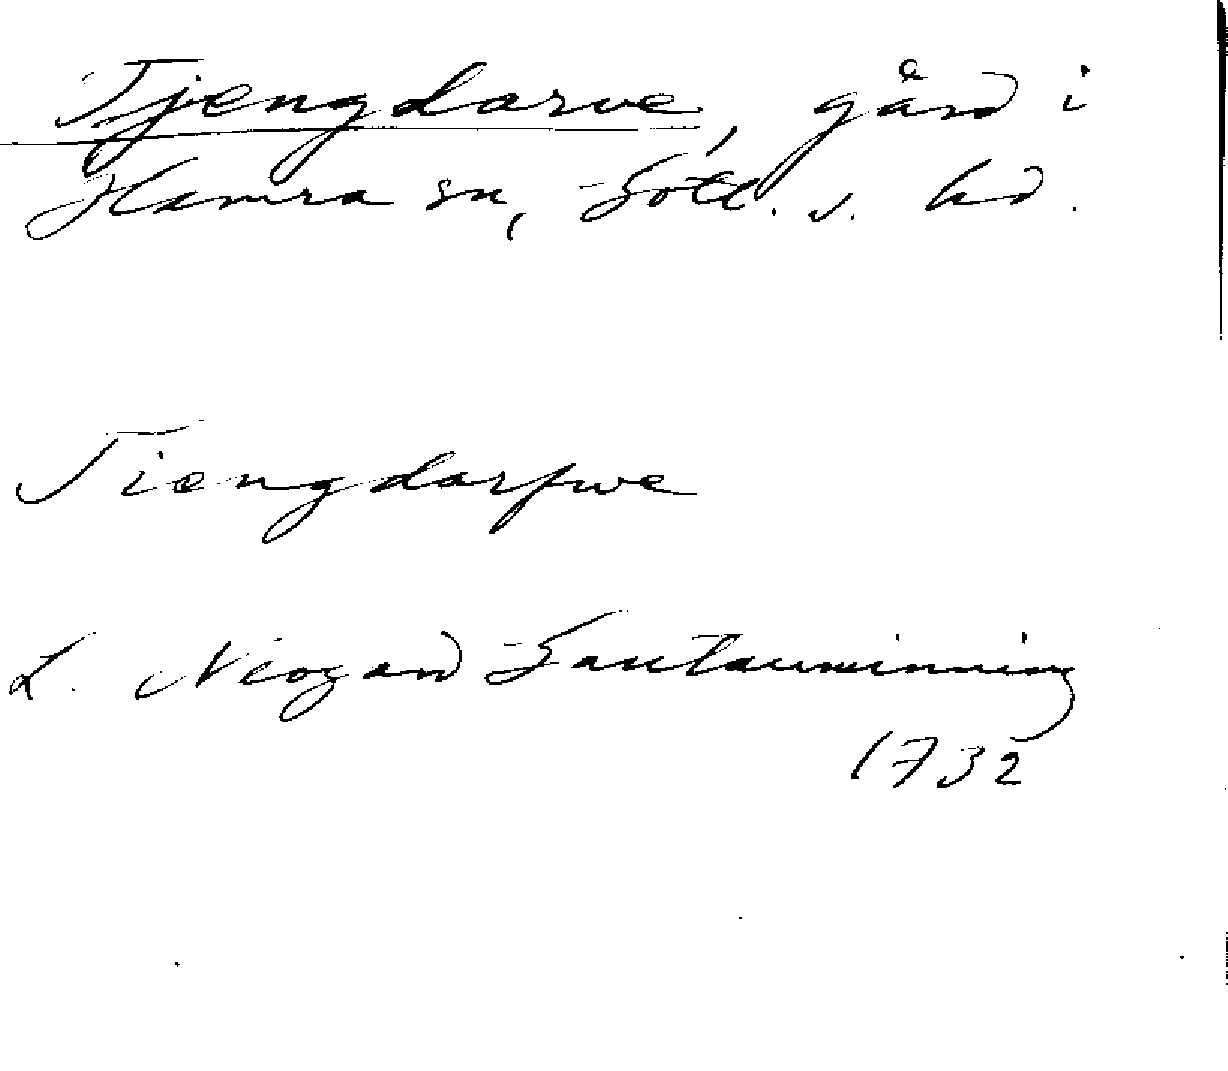 Tjengdarve, gård i
Hamra sn, Gotl. s. hd.
Tiengdarfwe
L. Neogard Gautauminning
1732